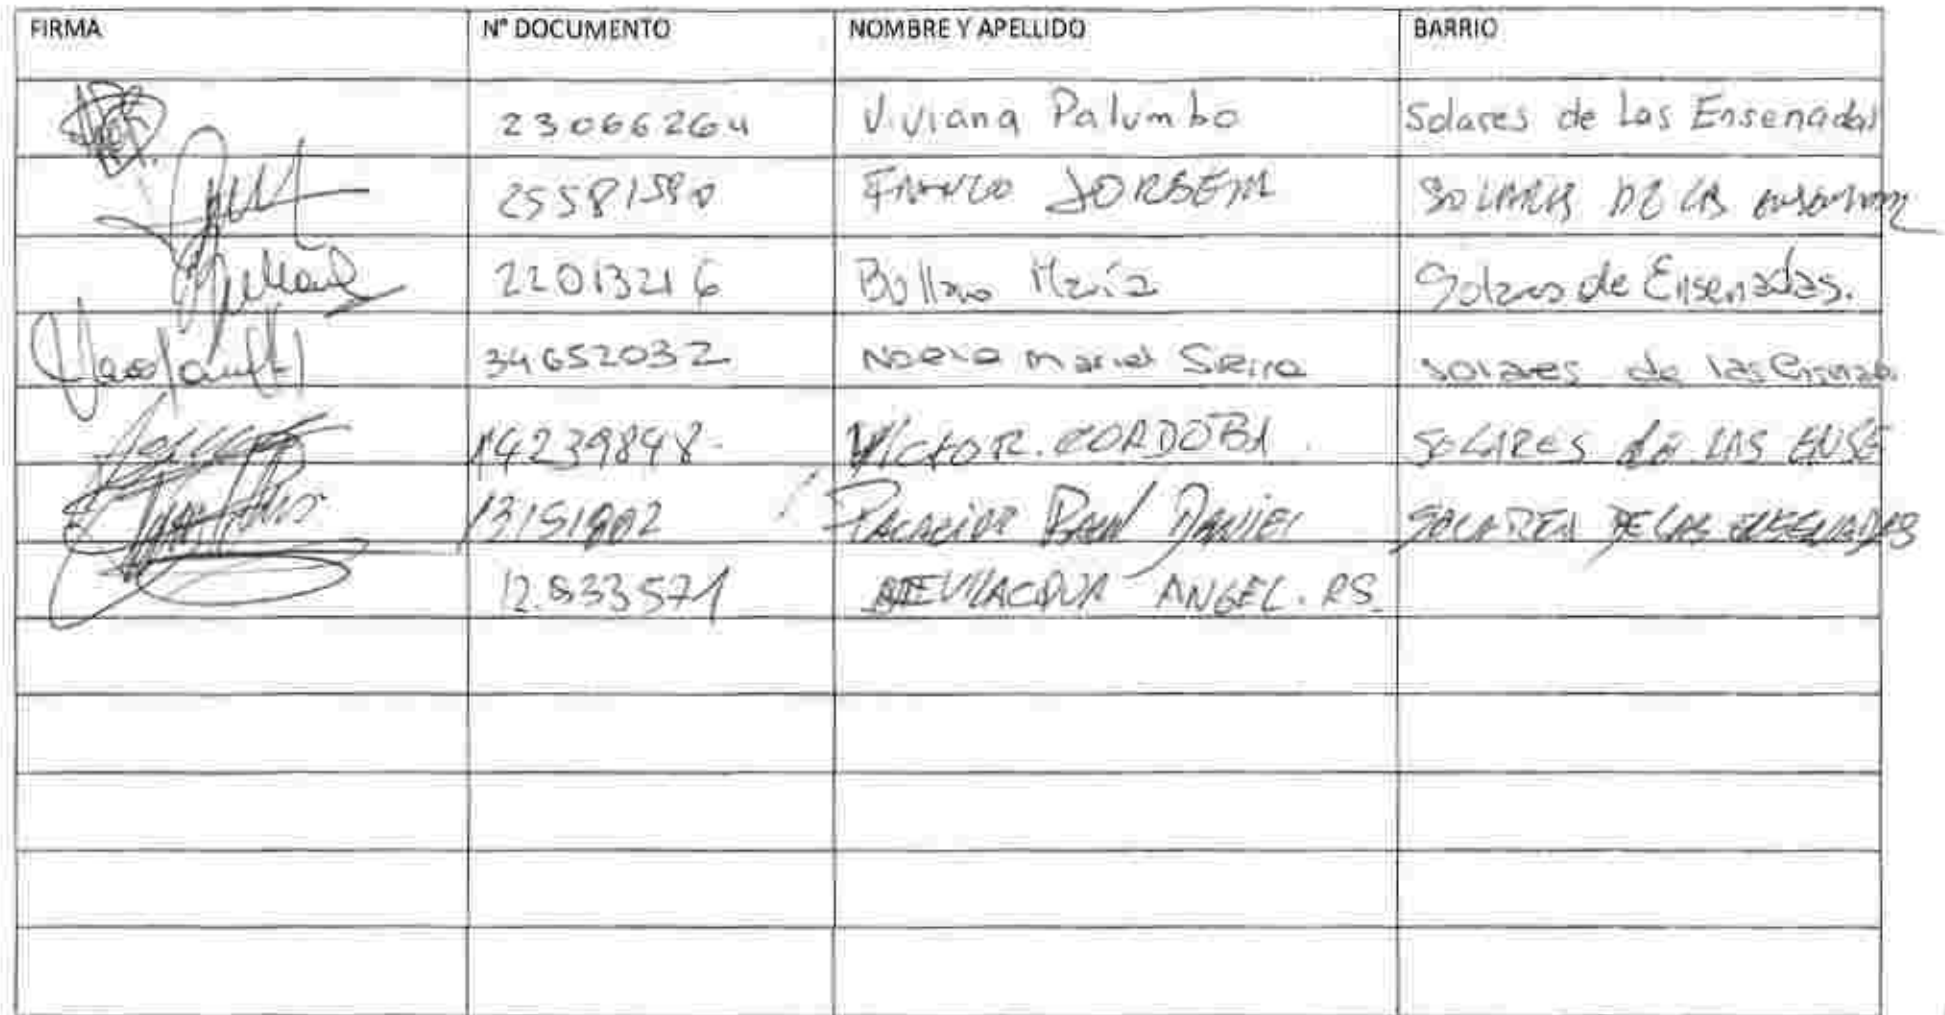 FIRMA N° DOCUMENTO NOMBRE Y APELLIDO BARRIO
23066264 Viviana Palumbo Solares de Las Ensenadas
25581590 JORGE M SOLARES DE LAS
22013216 María Solares de Ensenadas.
34652032 Noelia Mariel Sierra solares de las Ensenad.
14239848- VICTOR. CORDOBA. SOLARES de LAS ENSE
PALACIOS RAUL DANIEL SOLARES DE LAS ENSENADAS
12.833571 BEVILACQUA ANGEL. RS.